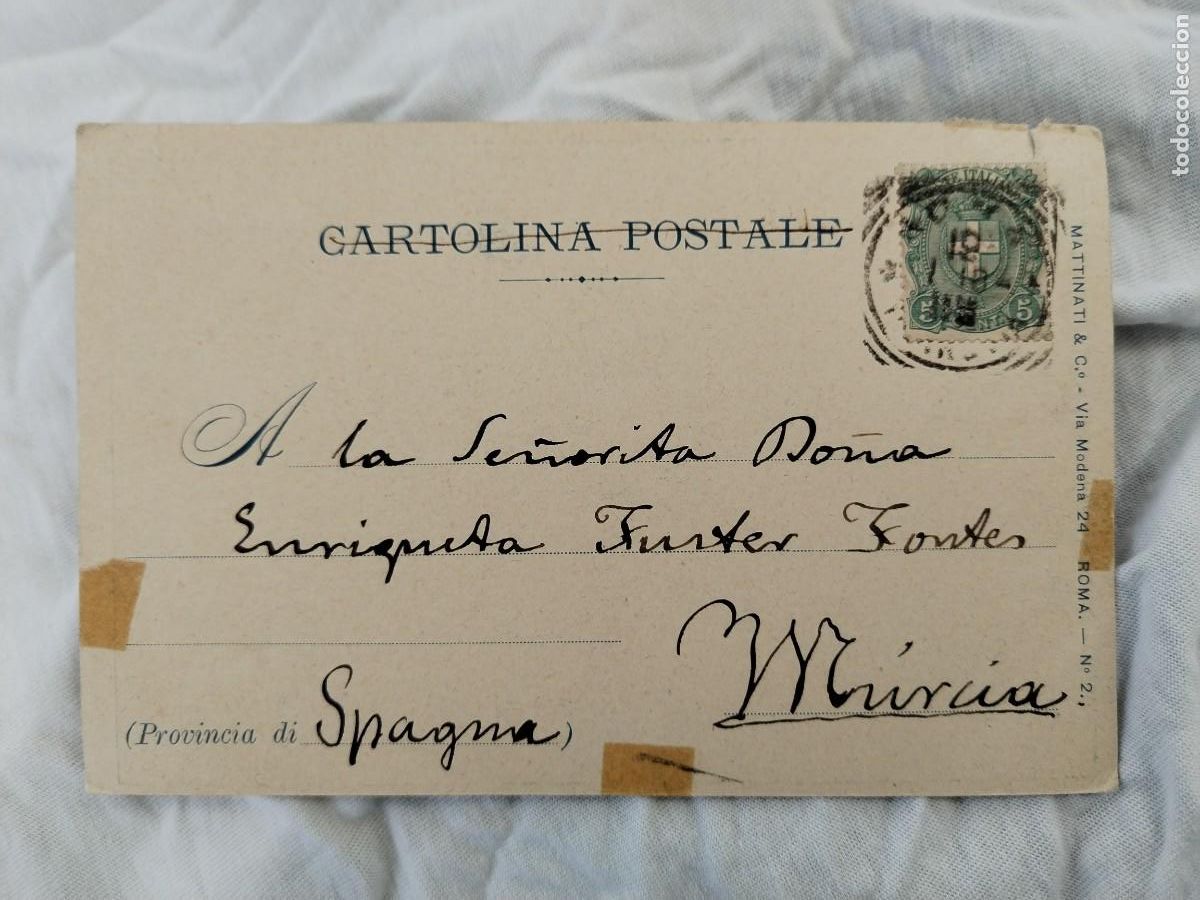 CARTOLINA POSTALE
A la Señorita Doña
Enriqueta Fuster Fontes
Múrcia
(Provincia di Spagna)
MATTINATI & C.º - Via Modena 24 ROMA. — Nº 2.;
5 5
todocoleccion